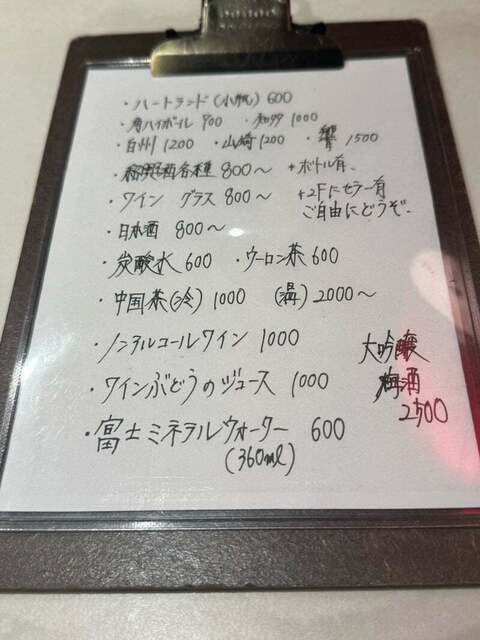 ・ハートランド(小瓶) 600
・角ハイボール 700 ・知多 1000
・白州 1200 ・山崎 1200 ・響 1500
・紹興酒各種 800〜 +ボトル有、
・ワイン グラス 800〜 +2Fにセラー有
ご自由にどうぞ.
・日本酒 800〜
・炭酸水 600 ・ウーロン茶 600
・中国茶(冷) 1000 2000〜
・ノンアルコールワイン 1000
・ワインぶどうのジュース 1000
・富士ミネラルウォーター 600
(360ml)
大吟醸
梅酒
2500